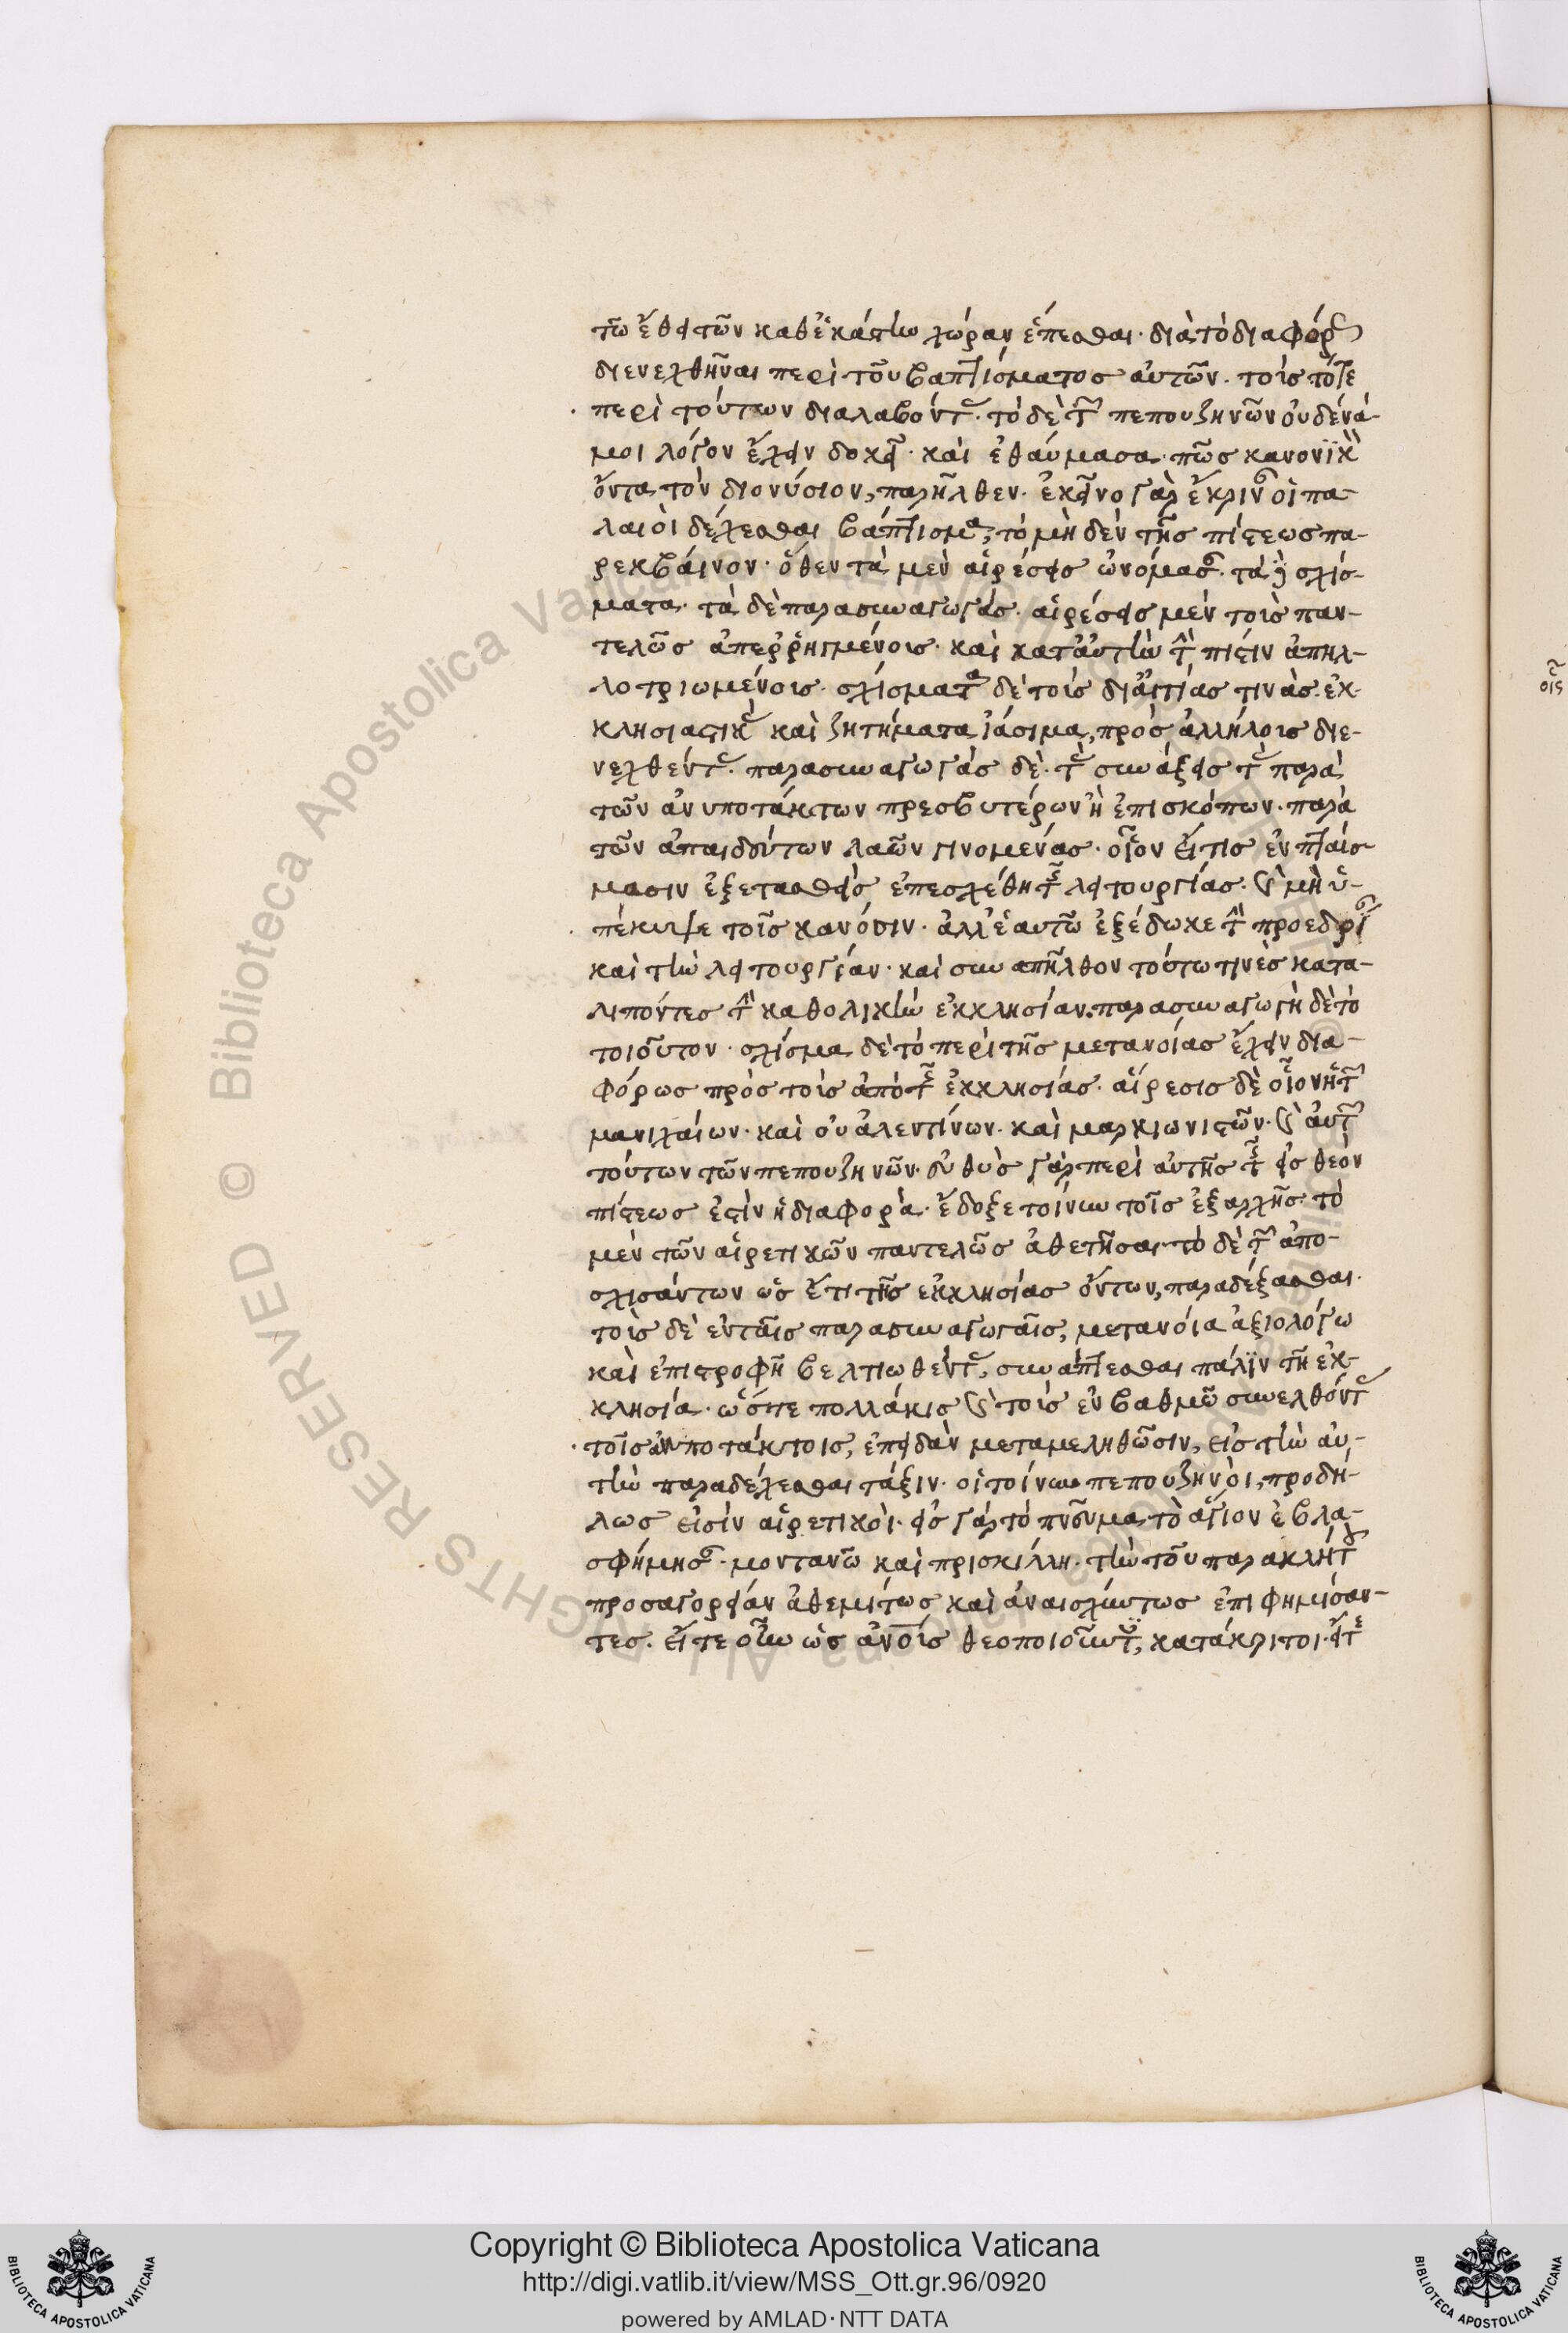 τῶ ἔθει τῶν καθ' ἑκάστην χώραν ἕπεσθαι· διὰ τὸ διαφόρ
διενεχθῆναι περὶ τοῦ βαπτίσματος αὐτῶν· τοὺς τότε
περὶ τούτων διαλαβόντ· τὸ δὲ τ πεπουζηνῶν οὐδένά-
μοι λόγον ἔχειν δοκεῖ· καὶ ἐθαύμασα πῶς κανονϊκ
ὄντα τὸν διονύσιον, παρῆλθεν· ἐκεῖνο γὰρ ἔκριν οἱ πα-
λαιοὶ δέχεσθαι βάπτισμα, τὸ μηδὲν τῆς πίστεως πα-
ρεκβαίνον· ὅθεν τὰ μὲν αἱρέσεις ὠνόμασ· τὰ δὲ σχίσ-
ματα· τὰ δὲ παρασυναγωγάς· αἱρέσεις μὲν τοὺς παν-
τελῶς ἀπερρηγμένους· καὶ κατ' αὐτὴν τ πίστιν ἀπηλ-
λοτριωμένους· σχίσματα δὲ τοὺς δι' αἰτίας τινὰς ἐκ-
κλησιαστικ καὶ ζητήματα ἰάσιμα, πρὸς ἀλλήλους διε-
νεχθέντ· παρασυναγωγὰς δὲ· τ συνάξεις τ παρὰ
τῶν ἀνυποτάκτων πρεσβυτέρων ἢ ἐπισκόπων· παρὰ
τῶν ἀπαιδεύτων λαῶν γινομένας· οἷον εἴ τις ἐν πταίσ-
μασιν ἐξετασθεὶς ἐπεσχέθη τ λειτουργίας· καὶ μὴ ὑ-
πέκυψε τοῖς κανόσιν· ἀλλ' ἑαυτῶ ἐξέδωκε τ προεδρί
καὶ τὴν λειτουργίαν· καὶ συναπῆλθον τούτω τινὲς κατα-
λιπόντες τ καθολικὴν ἐκκλησίαν· παρασυναγωγὴ δὲ τὸ
τοιοῦτον· σχίσμα δὲ τὸ περὶ τῆς μετανοίας ἔχειν δια-
φόρως πρὸς τοὺς ἀπὸ τ ἐκκλησίας· αἵρεσις δὲ οἷον ἡ τ
μανιχαίων· καὶ οὐαλεντίνων· καὶ μαρκιωνιστῶν· καὶ αὐτ
τούτων τῶν πεπουζηνῶν· εὐθὺς γὰρ περὶ αὐτῆς τ εἰς θεὸν
πίστεως ἐστὶν ἡ διαφορά· ἔδοξε τοίνυν τοῖς ἐξ ἀρχῆς τὸ
μὲν τῶν αἱρετικῶν παντελῶς ἀθετῆσαι· τὸ δὲ τ ἀπο-
σχισάντων ὡς ἔτι τῆς ἐκκλησίας ὄντων, παραδέξασθαι·
τοὺς δὲ ἐν ταῖς παρασυναγωγαῖς, μετανοία ἀξιολόγω
καὶ ἐπιστροφῆ βελτιωθέντ, συνάπτεσθαι πάλϊν τῆ ἐκ-
κλησία· ὥστε πολλάκις καὶ τοὺς ἐν βαθμῶ συνελθόντ
τοῖς ἀνυποτάκτοις, ἐπειδὰν μεταμεληθῶσιν, εἰς τὴν αὐ-
τὴν παραδέχεσθαι τάξιν· οἱ τοίνυν πεπουζηνοὶ, προδή-
λως εἰσὶν αἱρετικοί· εἰς γὰρ τὸ πνεῦμα τὸ ἅγιον ἐβλα-
σφήμησ· μοντανῶ καὶ πρισκίλλη· τὴν τοῦ παρακλήτ
προσηγορείαν ἀθεμίτως καὶ ἀναισχύντως ἐπιφημίσαν-
τες· εἴτε οὖν ὡς ἀνοὺς θεοποιοῦντ, κατάκριτοι· εἴτε
Copyright © Biblioteca Apostolica Vaticana
http://digi.vatlib.it/view/MSS_Ott.gr.96/0920
powered by AMLAD · NTT DATA